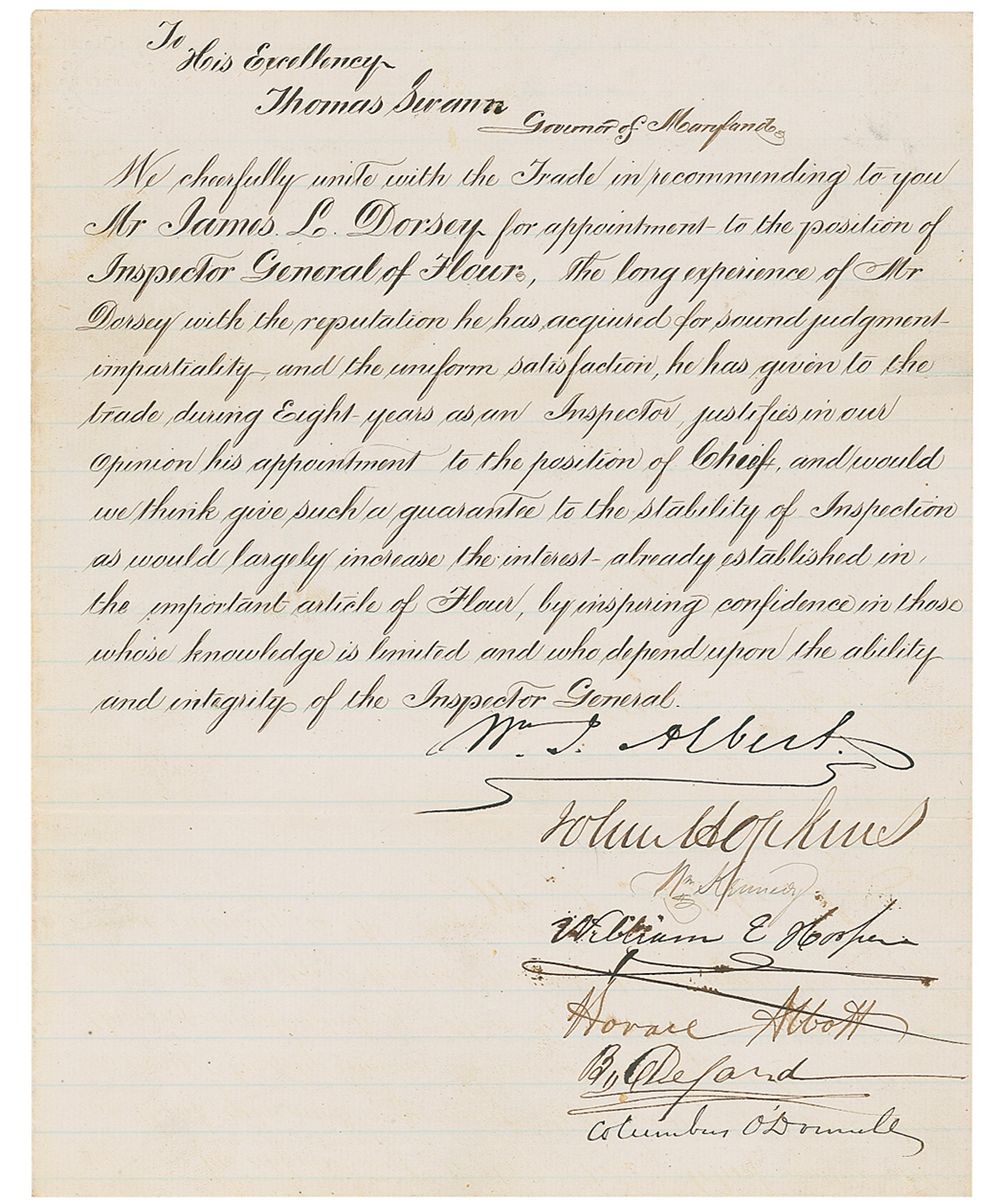 To
His Excellency
Thomas Swann
Governor of Maryland.
We cheerfully unite with the Trade in recommending to you
Mr James. L. Dorsey for appointment to the position of
Inspector General of Flour, the long experience of Mr
Dorsey with the reputation he has acquired for sound judgment
impartiality, and the uniform satisfaction, he has given to the
trade during Eight years as an Inspector, justifies in our
Opinion his appointment to the position of Chief, and would
we think give such a guarantee to the stability of Inspection
as would largely increase the interest already established in
the important article of Flour, by inspiring confidence in those
whose knowledge is limited and who depend upon the ability
and integrity of the Inspector General.
Wm J. Albert.
Johns Hopkins
Wm Kennedy.
William E Hooper
Horace Abbott
B, Deford
Columbus O'Donnell